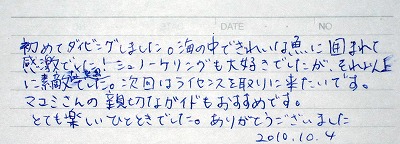 DATE NO
初めてダイビングしました。海の中できれいな魚に囲まれて
感激でした！シュノーケリングも大好きでしたが、それ以上
に素敵でした。次回はライセンスを取りに来たいです。
マユミさんの親切なガイドもおすすめです。
とても楽しいひとときでした。ありがとうございました
2010.10.4